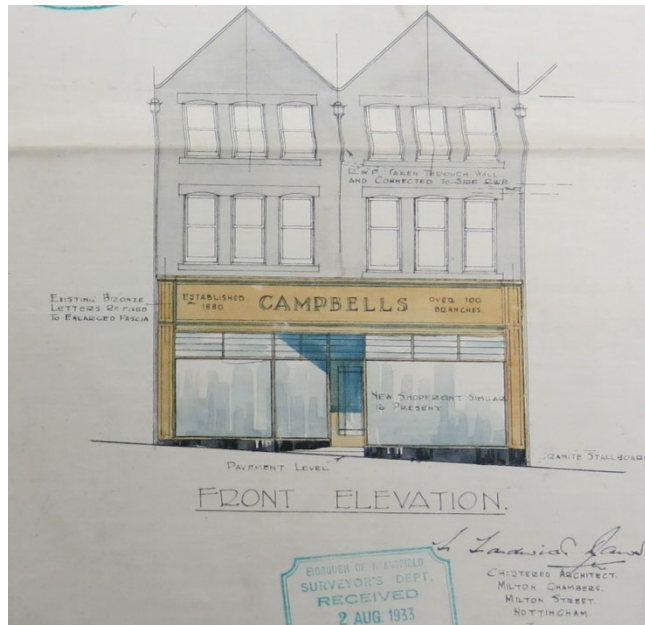 R.W.P. TAKEN THROUGH WALL
AND CONNECTED TO SIDE R.W.P.
EXISTING BRONZE
LETTERS REFIXED
TO ENLARGED FASCIA
ESTABLISHED
1880
CAMPBELLS
OVER 100
BRANCHES
NEW SHOPFRONT SIMILAR
TO PRESENT
PAVEMENT LEVEL
GRANITE STALLBOARD
FRONT ELEVATION.
CHARTERED ARCHITECT.
MILTON CHAMBERS.
MILTON STREET.
NOTTINGHAM.
BOROUGH OF MANSFIELD
SURVEYOR'S DEPT.
RECEIVED
2 AUG. 1933